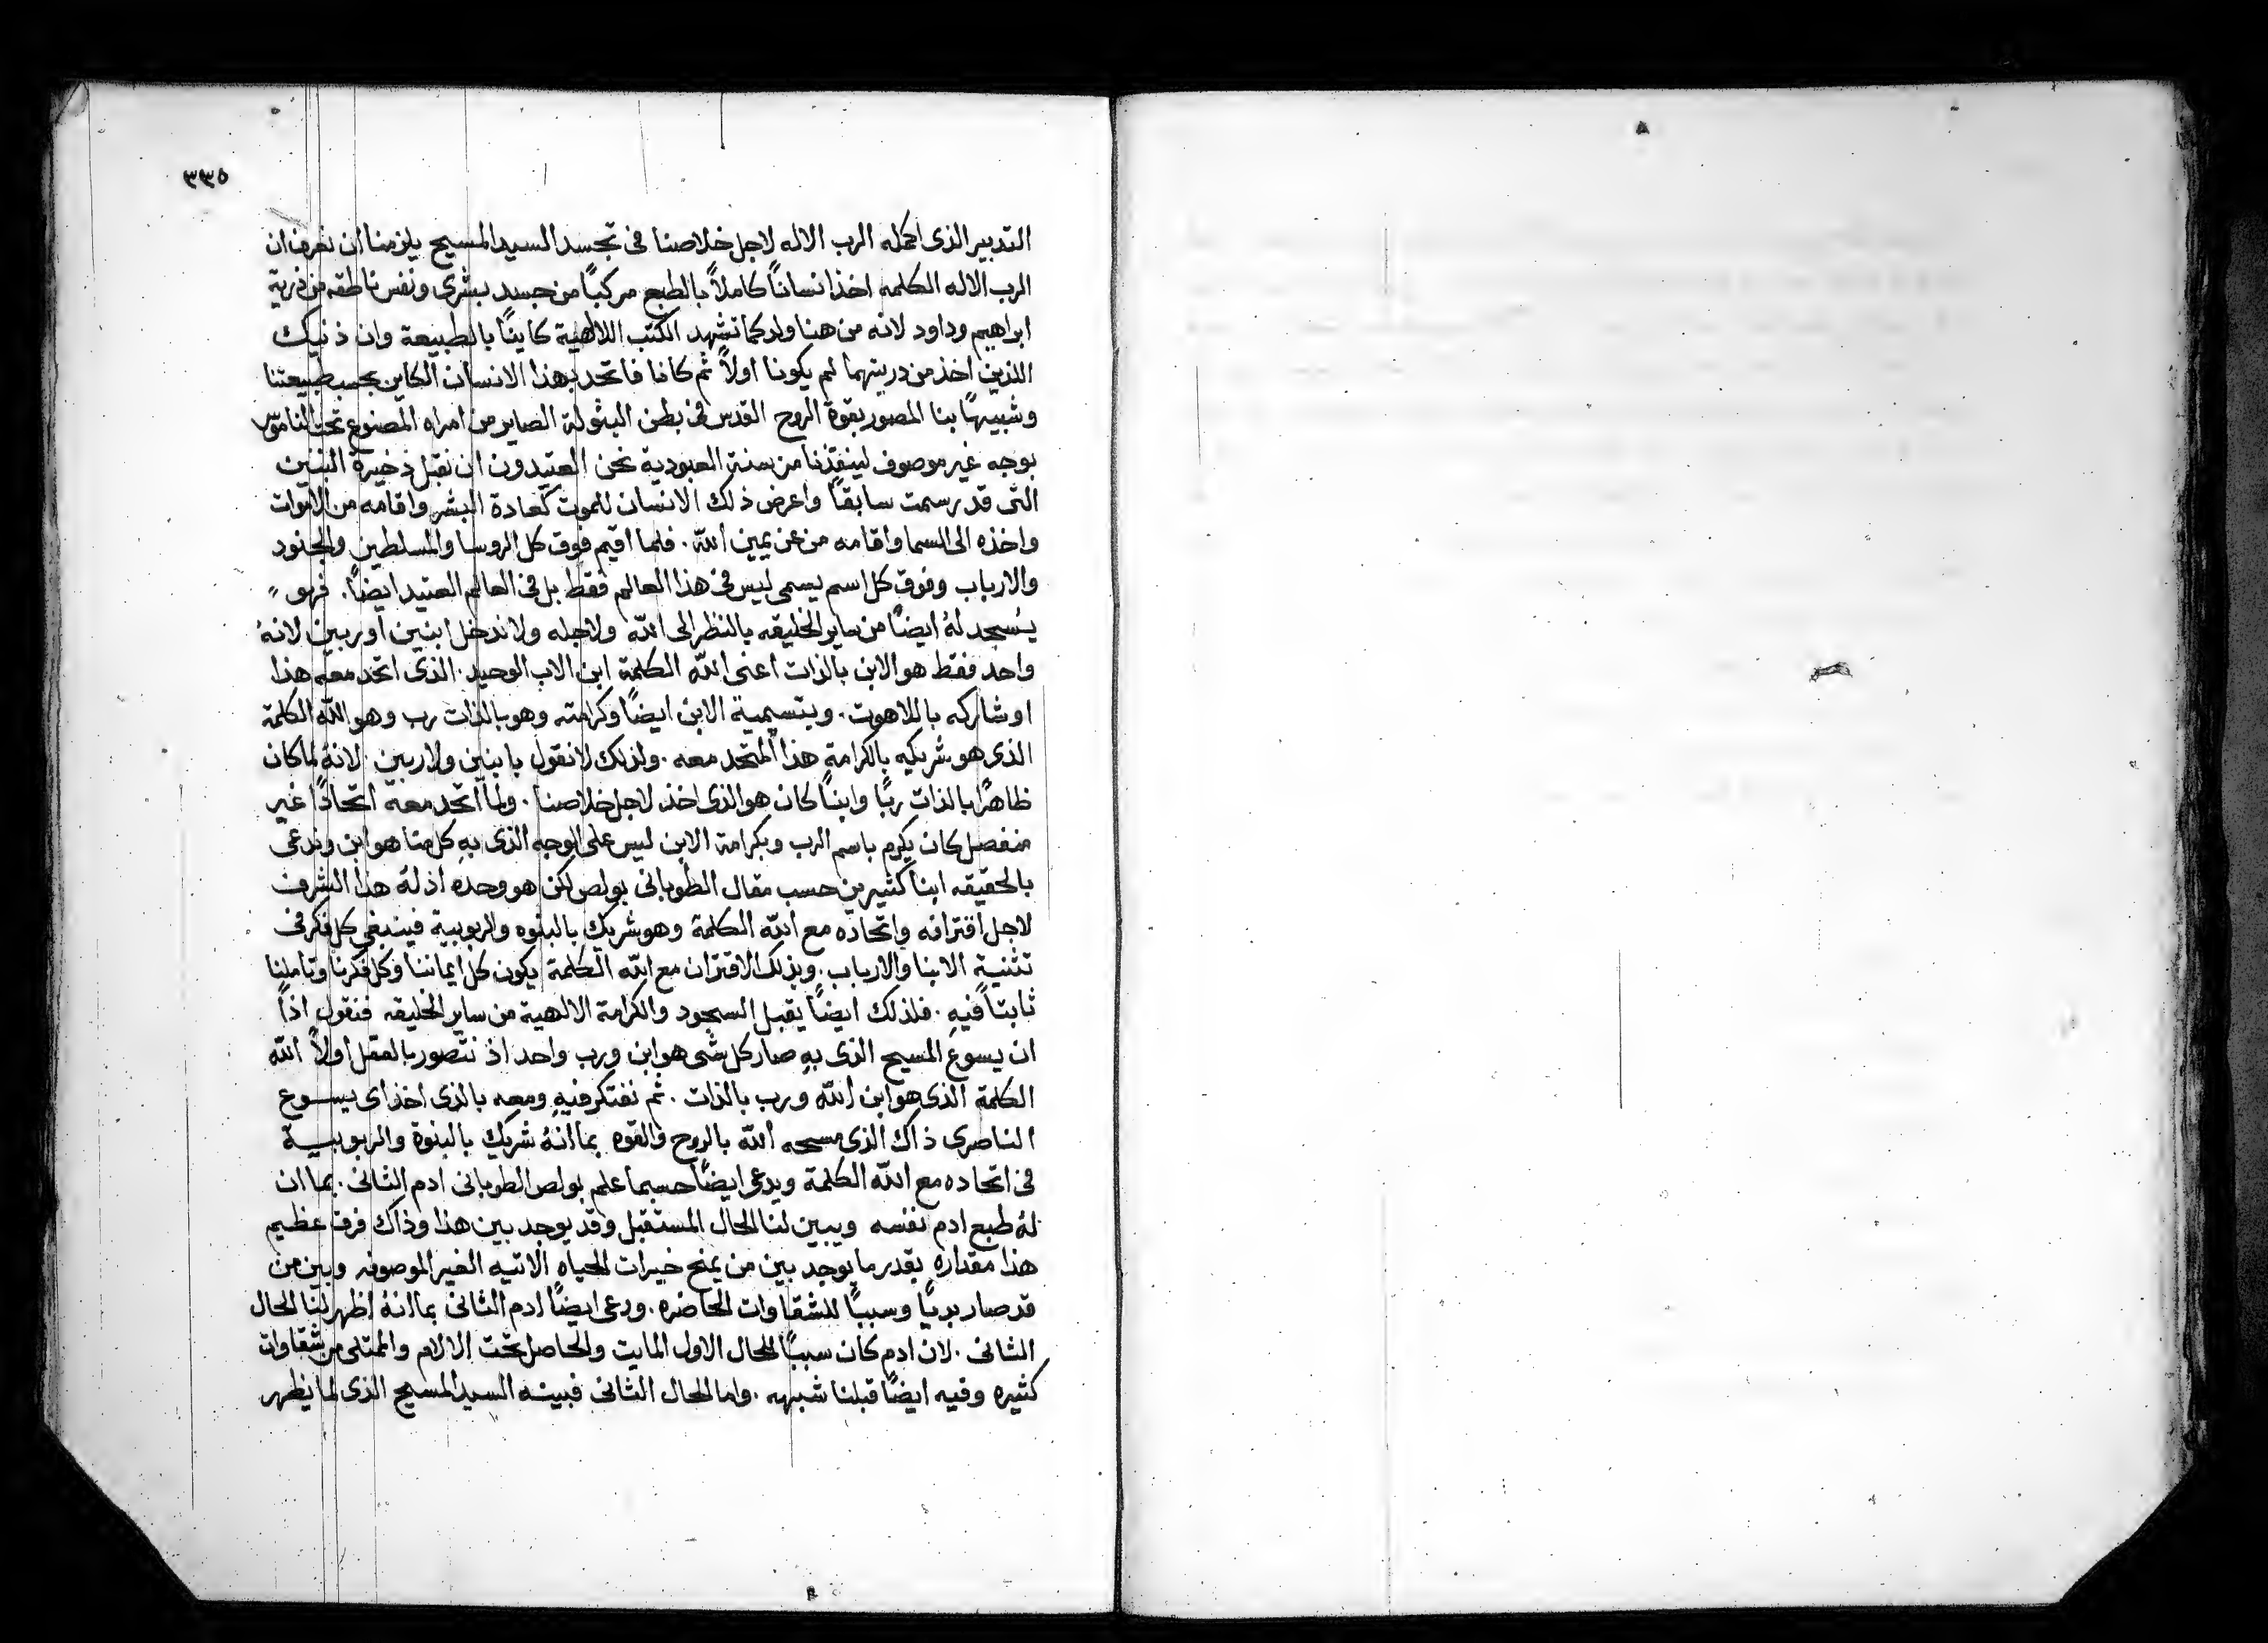 ٣٣٥
التدبير الذى اكمله الرب الاله لاجل خلاصنا فى تجسد السيد المسيح يلزمنا ان نعرف ان
الرب الاله الكلمه اخذ انسانًا كاملاً بالطبع مركبًا من جسد بشرى ونفس ناطقه من ذرية
ابراهيم وداود لانه من هنا ولد كما تشهد الكتب اللالهية كاينًا بالطبيعة وان ذنيك
اللذين اخذ من دريتهما لم يكونا اولاً ثم كانا فاتحد بهذا الانسان الكاين بحسب طبيعتنا
وشبيهًا بنا المصور بقوة الروح القدس فى بطن البتولة الصاير من امراه المصنوع تحت الناموس
بوجه غير موصوف لينقذنا من سنة العبودية نحن العتيدون ان نقبل ذخيرة البنين
التى قد رسمت سابقًا واعرض ذلك الانسان للموت كعادة البشر واقامه من الاموات
واخذه الى السما واقامه من عن يمين الله. فلما اقيم فوق كل الروسا والمسلطين والجنود
والارباب وفوق كل اسم يسمى ليس فى هذا العالم فقط بل فى العالم العتيد ايضًا. فهو
يُسجد لهُ ايضًا من ساير الخليقه بالنظر الى الله ولاجله ولا ندخل ابنين او ربين لانهُ
واحد فقط هو الابن بالذات اعنى الله الكلمة ابن الاب الوحيد. الذى اتحد معه هذا
او شاركه باللاهوت. وبتسمية الابن ايضًا وكرامته وهو بالذات رب وهو الله الكلمة
الذى هو شريكه بالكرامة هذا المتحد معه. ولذلك لا نقول بابنين ولا ربين. لانهُ لما كان
ظاهرًا بالذات ربًا وابنًا كان هو الذى اخذ لاجل خلاصنا. ولما اتحد معه اتحادًا غير
منفصل كان يكرم باسم الرب وبكرامة الابن ليس على الوجه الذى بهِ كل منا هو ابن وندعى
بالحقيقه ابنا كثيرين حسب مقال الطوبانى بولص لكن هو وحده اذ لهُ هذا الشرف
لاجل اقترانه واتحاده مع الله الكلمة وهو شريك بالبنوه والربوبية فينبغى كل فكر فى
تثنية الابنا والارباب. وبذلك الاقتران مع الله الكلمة يكون كل ايماننا وكل فكرنا وتاملنا
ثابتًا فيهِ. فلذلك ايضًا يقبل السجود والكرامة الالهية من ساير الخليقه فنقول اذًا
ان يسوع المسيح الذى بهِ صار كل شى هو ابن ورب واحد اذ نتصور بالعقل اولاً الله
الكلمة الذى هو ابن الله ورب بالذات. ثم نفتكر فيهِ ومعه بالذى اخذ اى يسوع
الناصرى ذاك الذى مسحه الله بالروح والقوه بما انهُ شريك بالبنوة والربوبية
فى اتحاده مع الله الكلمة ويدعى ايضًا حسبما علم بولص الطوبانى ادم الثانى. بما ان
لهُ طبع ادم نفسه ويبين لنا الحال المستقبل وقد يوجد بين هذا وذاك فرق عظيم
هذا مقداره بقدر ما يوجد بين من يمنح خيرات الحياه الاتيه الغير الموصوفه وبين من
قد صار بديًا وسببًا للشقاوات الحاضره. ودعى ايضًا ادم الثانى بما انهُ اظهر لنا الحال
الثانى. لان ادم كان سببًا للحال الاول المايت والحاصل تحت الالام والممتلى من شقاوات
كثيره وفيه ايضًا قبلنا شبهه. واما الحال الثانى فبينه السيد المسيح الذى لما يظهر